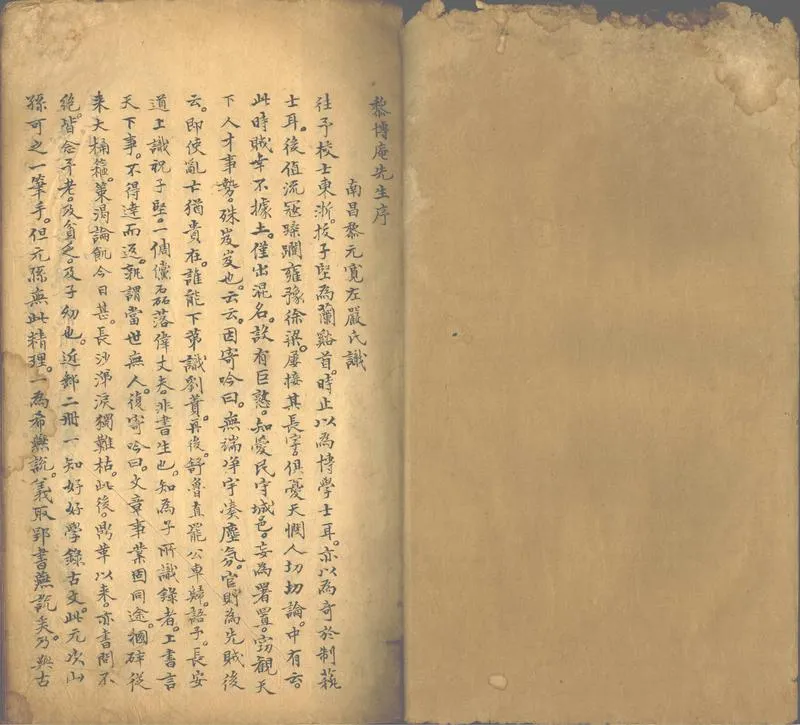 黎博庵先生序
南昌黎元寬左嚴氏識
往予校士東浙。拔子堅為蘭谿首。時止以為博學士耳。亦以為奇於制藝
士耳。後值流寇蹂躪雍豫徐梁。屢接其長字。俱憂天憫人切切論。中有云。
此時賊幸不據土。僅出混名。設有巨憝。知愛民守城邑。妄為署置。竊觀天
下人才事勢。殊岌岌也。云云。因寄吟曰。無端淨宇凑塵氛。官則為先賊後
云。即使亂亡猶貴在。誰能下第識劉蕡。再後。舒魯直罷公車歸語予。長安
道上識祝子堅。一倜儻磊落偉丈夫。非書生也。知為子所識錄者。上書言
天下事。不得達而返。孰謂當世無人。復寄吟曰。文章事業固同途。摑碎從
来大桶箍。策渴論飢今日甚。長沙涕淚獨難枯。此後。鼎革以来。亦書問不
絶。皆念予老。及貧乏。及子幼也。近郵二冊一知好好學錄古文。此元次山
孫可之一筆手。但元孫無此精理。一為希燕說。義取郢書燕說矣。乃與古